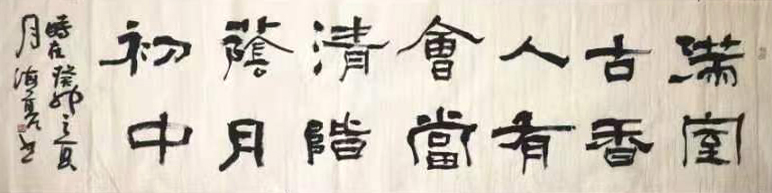 滿室
古香
人有
會當
清階
蔭月
初中
時在癸卯之
月海亮书